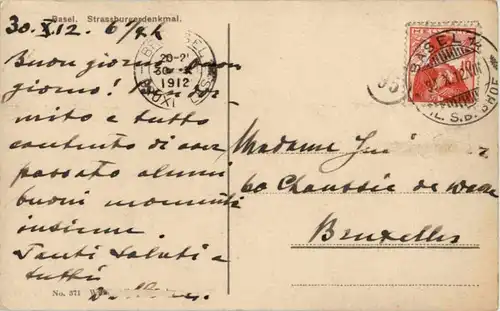 Basel. Strassburgerdenkmal.
30.X.12.
Buon giorno, buon
giorno!
mito e tutto
contento di aver
passato alcuni
buoni momenti
insieme.
Tanti saluti a
tutti
No. 371
BRUXELLES
20-21
30 X
1912
BASEL
HELVETIA
Madame
60 Chaussée de Wavre
Bruxelles